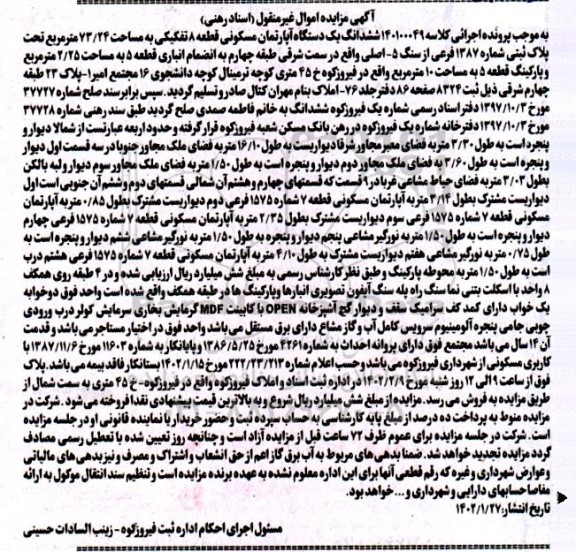 آگهی مزایده اموال غیرمنقول (اسناد رهنی)
به موجب پرونده اجرائی کلاسه ۱۴۰۱۰۰۰۴۹ ششدانگ یک دستگاه آپارتمان مسکونی قطعه ۸ تفکیکی به مساحت ۷۳/۲۴ مترمربع تحت
پلاک ثبتی شماره ۱۳۸۷ فرعی از سنگ ۵- اصلی واقع در سمت شرقی طبقه چهارم به انضمام انباری قطعه ۵ به مساحت ۲/۲۵ مترمربع
و پارکینگ قطعه ۵ به مساحت ۱۰ مترمربع واقع در فیروزکوه خ ۴۵ متری کوچه ترمینال کوچه دانشجوی ۱۶ مجتمع امیرا- پلاک ۲۳ طبقه
چهارم شرقی ذیل ثبت ۸۳۲۴ صفحه ۸۶ دفتر جلد ۷۶- املاک بنام مهران کتال صادر و تسلیم گردید. سپس برابر سند صلح شماره ۳۷۷۲۷
مورخ ۱۳۹۷/۱۰/۳ دفتر اسناد رسمی شماره یک فیروزکوه ششدانگ به خانم فاطمه صمدی صلح گردید طبق سند رهنی شماره ۳۷۷۲۸
مورخ ۱۳۹۷/۱۰/۳ دفترخانه شماره یک فیروزکوه در رهن بانک مسکن شعبه فیروزکوه قرار گرفته و حدود اربعه عبارتست از شمالا دیوار و
پنجره است به طول ۳/۳۰ متر به فضای معبر مجاور شرقا دیواریست به طول ۱۶/۱۰ متر به فضای ملک مجاور جنوبا در سه قسمت اول دیوار
و پنجره است به طول ۳/۶۰ به فضای ملک مجاور دوم دیوار و پنجره است به طول ۱/۵۰ متر به فضای ملک مجاور سوم دیوار و لبه بالکن
بطول ۳/۰۳ متر به فضای حیاط مشاعی غربا در ۹ قسمت که قسمتهای چهارم و هشتم آن شمالی قسمتهای دوم و ششم آن جنوبی است اول
دیواریست مشترک بطول ۳/۱۴ متر به آپارتمان مسکونی قطعه ۷ شماره ۱۵۷۵ فرعی دوم دیواریست مشترک بطول ۰/۸۵ متر به آپارتمان
مسکونی قطعه ۷ شماره ۱۵۷۵ فرعی سوم دیواریست مشترک بطول ۲/۳۵ متر به آپارتمان مسکونی قطعه ۷ شماره ۱۵۷۵ فرعی چهارم
دیوار و پنجره است به طول ۱/۵۰ متر به نورگیر مشاعی پنجم دیوار و پنجره به طول ۱/۵۰ متر به نورگیر مشاعی ششم دیوار و پنجره است به
طول ۰/۷۵ متر به نورگیر مشاعی هفتم دیواریست مشترک به طول ۴/۱۰ متر به آپارتمان مسکونی قطعه ۷ شماره ۱۵۷۵ فرعی هشتم درب
است به طول ۱/۵۰ متر به محوطه پارکینگ و طبق نظر کارشناس رسمی به مبلغ شش میلیارد ریال ارزیابی شده و در ۴ طبقه روی همکف
۸ واحد با اسکلت بتنی نما سنگ راه پله سنگ آیفون تصویری انبارها و پارکینگ ها در طبقه همکف واقع شده است واحد فوق دوخوابه
یک خواب دارای کمد کف سرامیک سقف و دیوار گچ آشپزخانه OPEN با کابینت MDF گرمایش بخاری سرمایش کولر درب ورودی
چوبی جامی پنجره آلومینیوم سرویس کامل آب و گاز مشاع دارای برق مستقل می باشد واحد فوق در اختیار مستاجر می باشد و قدمت
آن ۱۴ سال می باشد مجتمع فوق دارای پروانه احداث به شماره ۴۲۶۱ مورخ ۱۳۸۶/۵/۲۵ و پایانکار به شماره ۱۱۶۰۳ مورخ ۱۳۸۷/۱۱/۶ با
کاربری مسکونی از شهرداری فیروزکوه می باشد و حسب اعلام شماره ۲۲۲/۲۳/۲۱۳ مورخ ۱۴۰۲/۱/۱۵ بستانکار فاقد بیمه می باشد. پلاک
فوق از ساعت ۹ الی ۱۲ روز شنبه مورخ ۱۴۰۲/۲/۹ در اداره ثبت اسناد و املاک فیروزکوه واقع در فیروزکوه- خ ۴۵ متری به سمت شمال از
طریق مزایده به فروش می رسد. مزایده از مبلغ شش میلیارد ریال شروع و به بالاترین قیمت پیشنهادی نقدا فروخته می شود. شرکت در
مزایده منوط به پرداخت ده درصد از مبلغ پایه کارشناسی به حساب سپرده ثبت و حضور خریدار یا نماینده قانونی او در جلسه مزایده
است. شرکت در جلسه مزایده برای عموم ظرف ۷۲ ساعت قبل از مزایده آزاد است و چنانچه روز تعیین شده با تعطیل رسمی مصادف
گردد مزایده تجدید خواهد شد. ضمنا بدهی های مربوط به آب برق گاز اعم از حق انشعاب و اشتراک و مصرف و نیز بدهی های مالیاتی
و عوارض شهرداری و غیره که رقم قطعی آنها برای این اداره معلوم نشده به عهده برنده مزایده است و تنظیم سند انتقال موکول به ارائه
مفاصا حسابهای دارایی و شهرداری و ... خواهد بود.
تاریخ انتشار: ۱۴۰۲/۱/۲۷
مسئول اجرای احکام اداره ثبت فیروزکوه - زینب السادات حسینی